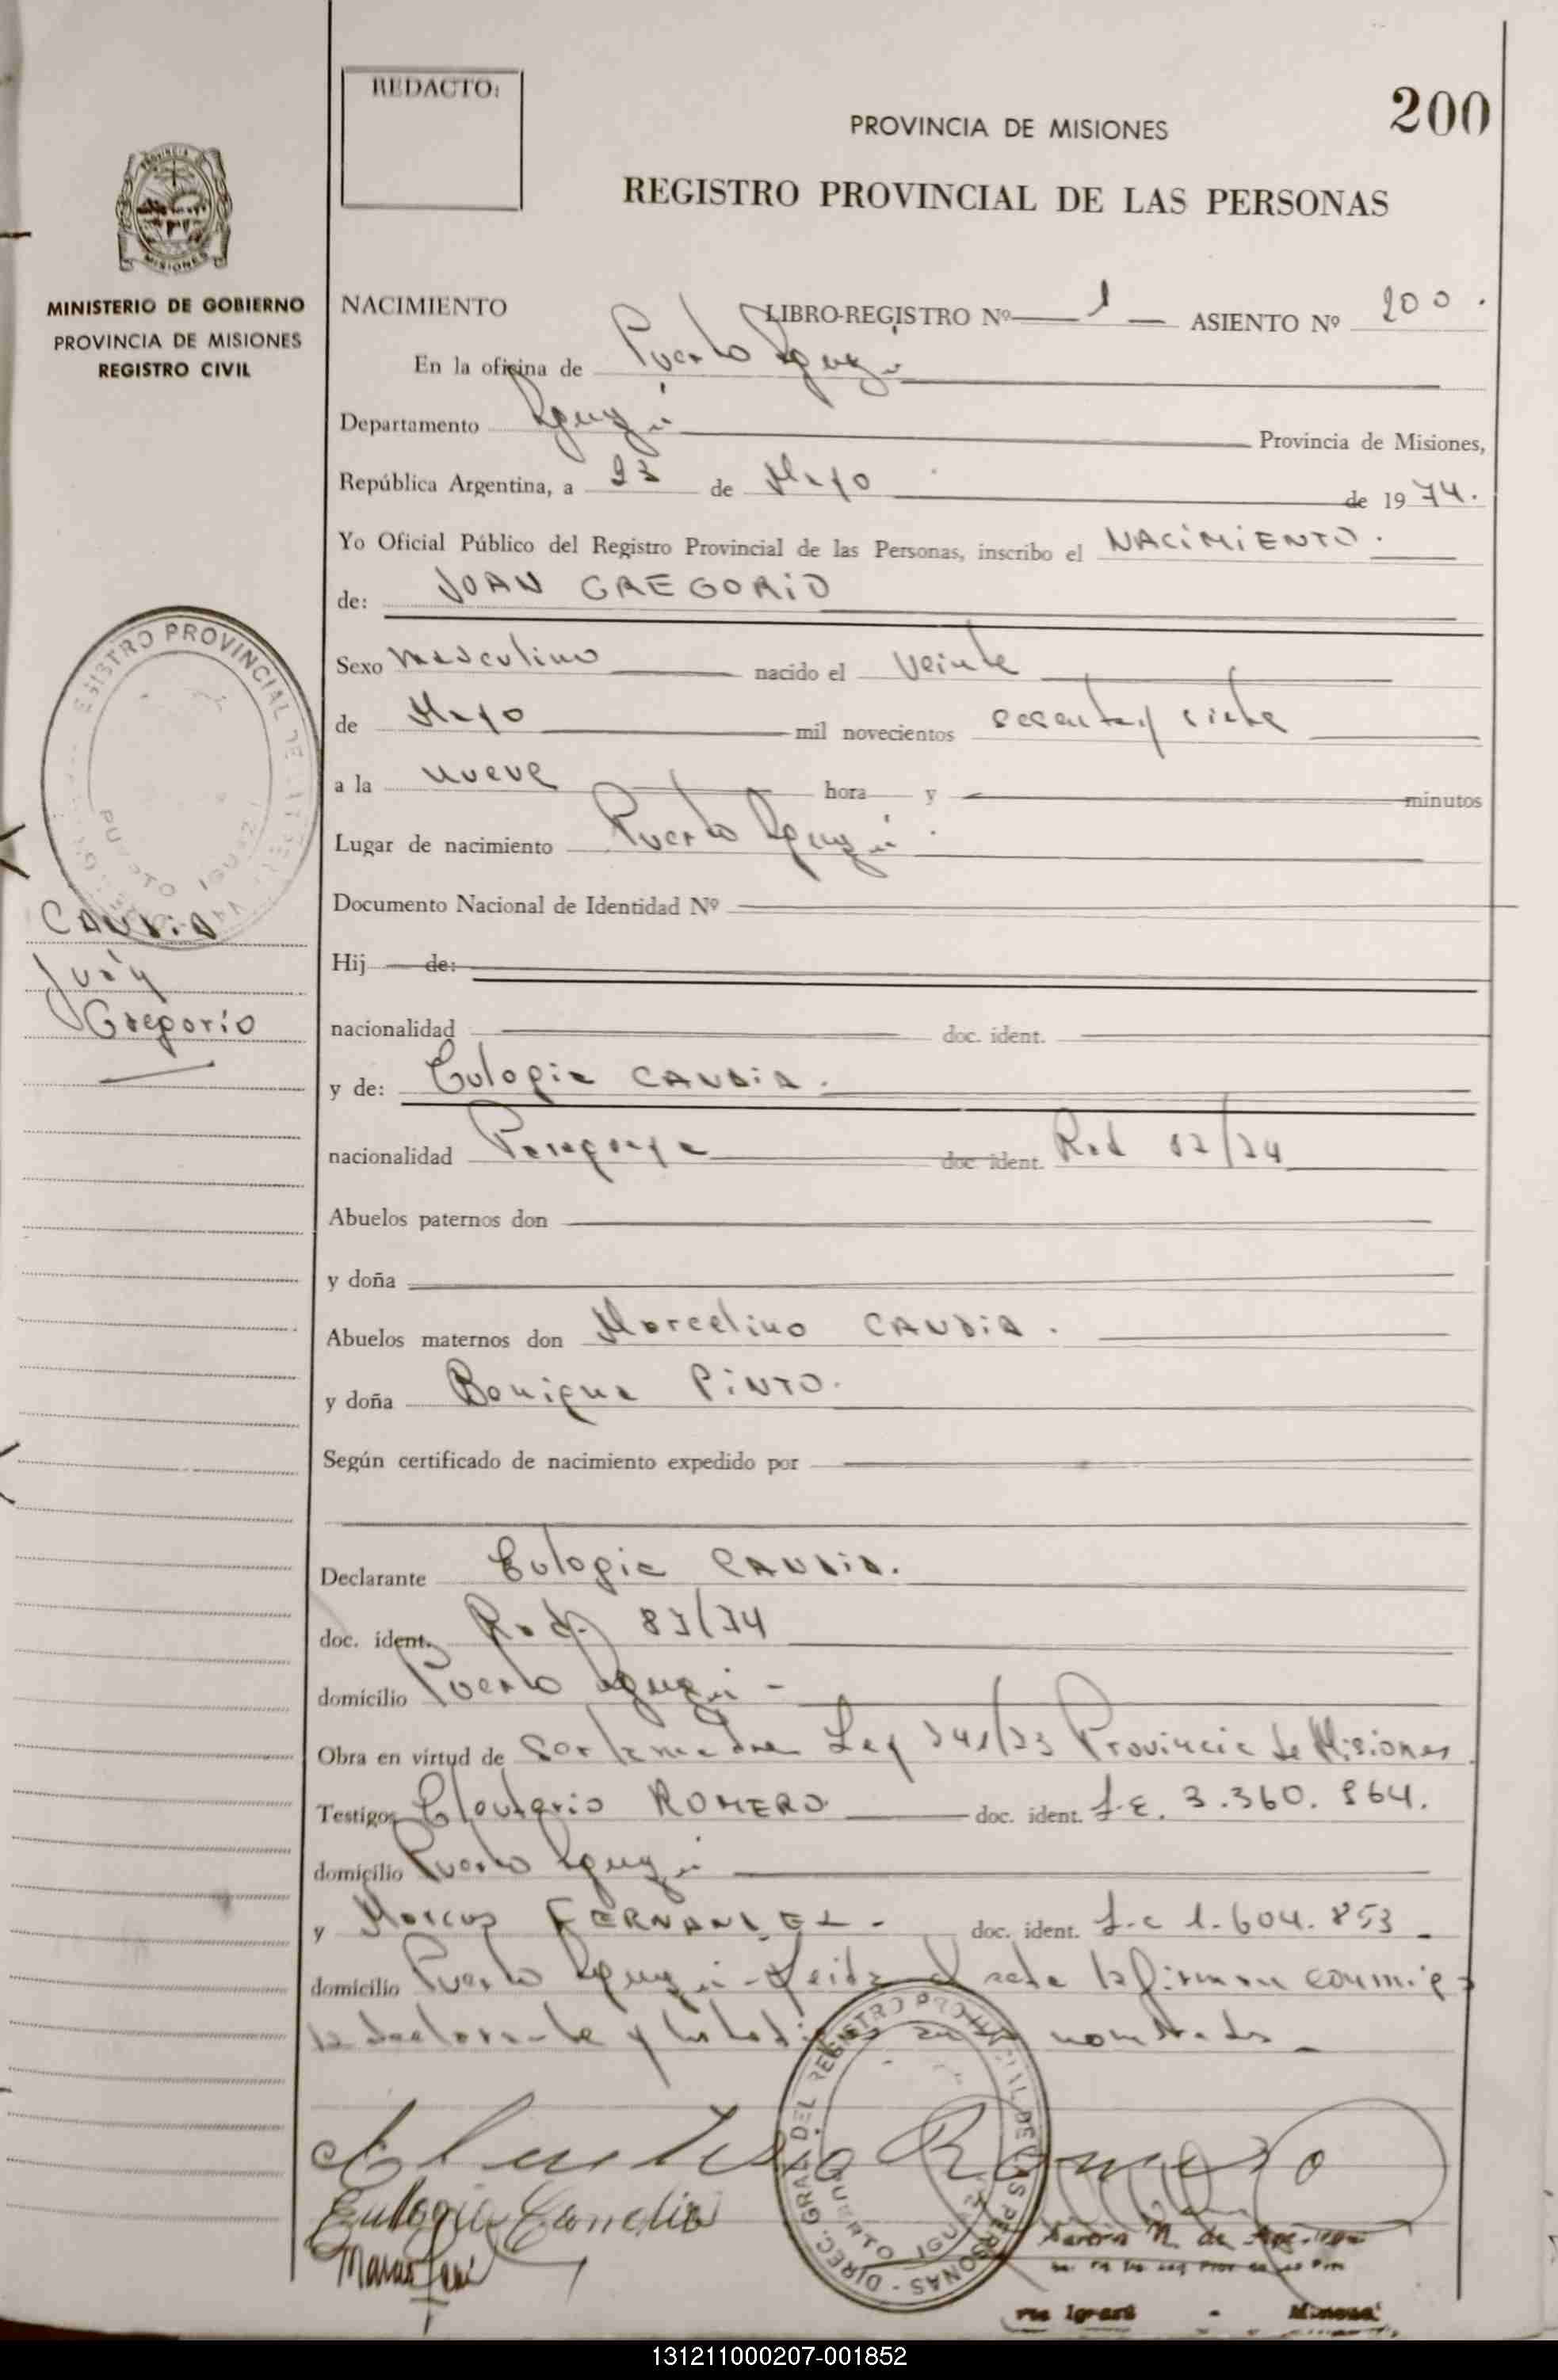 REDACTO:
200
PROVINCIA DE MISIONES
REGISTRO PROVINCIAL DE LAS PERSONAS
MISIONES
MINISTERIO DE GOBIERNO
PROVINCIA DE MISIONES
REGISTRO CIVIL
NACIMIENTO LIBRO-REGISTRO Nº 1 ASIENTO Nº 200.
En la oficina de Puerto Iguazú
Departamento Iguazú Provincia de Misiones,
República Argentina, a 23 de Mayo de 1974.
Yo Oficial Público del Registro Provincial de las Personas, inscribo el NACIMIENTO.
de: JUAN GREGORIO
Sexo Masculino nacido el veinte
de Mayo mil novecientos sesenta y siete
a la nueve hora y minutos
Lugar de nacimiento Puerto Iguazú.
Documento Nacional de Identidad Nº
CANDIA
Juan
Gregorio
Hij de:
nacionalidad doc. ident.
y de: Eulogia CANDIA.
nacionalidad Paraguaya doc ident. Rad
Abuelos paternos don
y doña
Abuelos maternos don Marcelino CANDIA.
y doña Benigna PINTO.
Según certificado de nacimiento expedido por
Declarante Eulogia CANDIA.
doc. ident. Rad.
domicilio Puerto Iguazú -
Obra en virtud de ser la madre Ley Provincia de Misiones
Testigos Eleuterio ROMERO doc. ident. L.E. 3.360.864.
domicilio Puerto Iguazú
y Marcos FERNANDEZ - doc. ident. 1.604.853
domicilio Puerto Iguazú - Leida el acta la firman conmigo
la declarante y los testigos nombrados
Eleuterio Romero
Eulogia Candia
DIREC. GRAL. DEL REGISTRO PROVINCIAL DE LAS PERSONAS - PUERTO IGUAZU
131211000207-001852